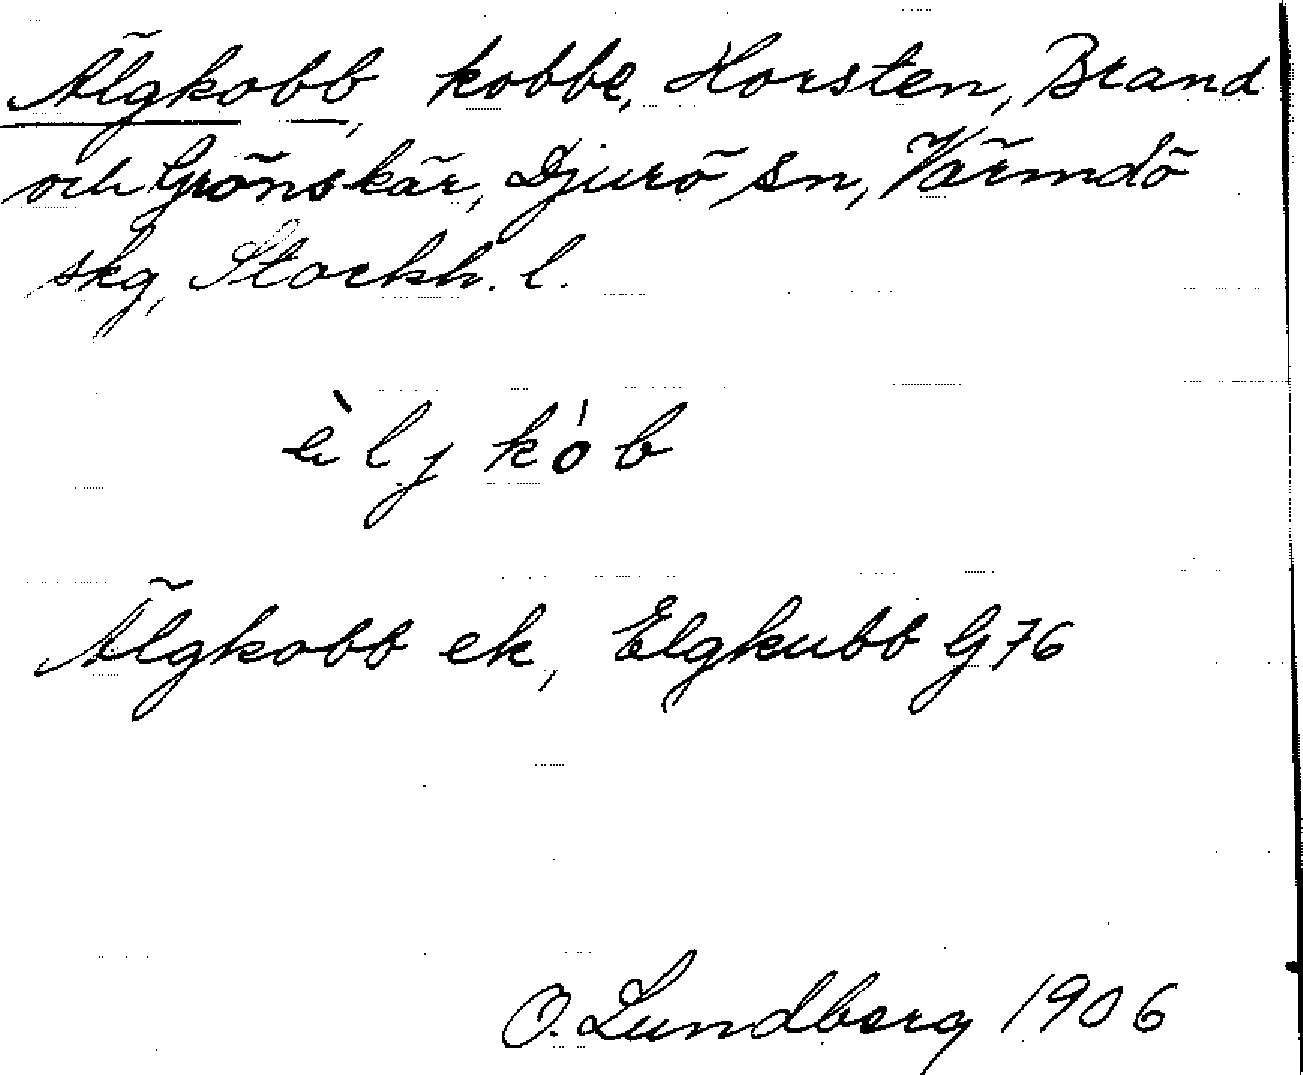 Älgkobb, kobbe, Horsten, Brand
och Grönskär, Djurö sn, Värmdö
skg, Stockh. l.
èljkób
Älgkobb ek, Elgkubb G76
O. Lundberg 1906